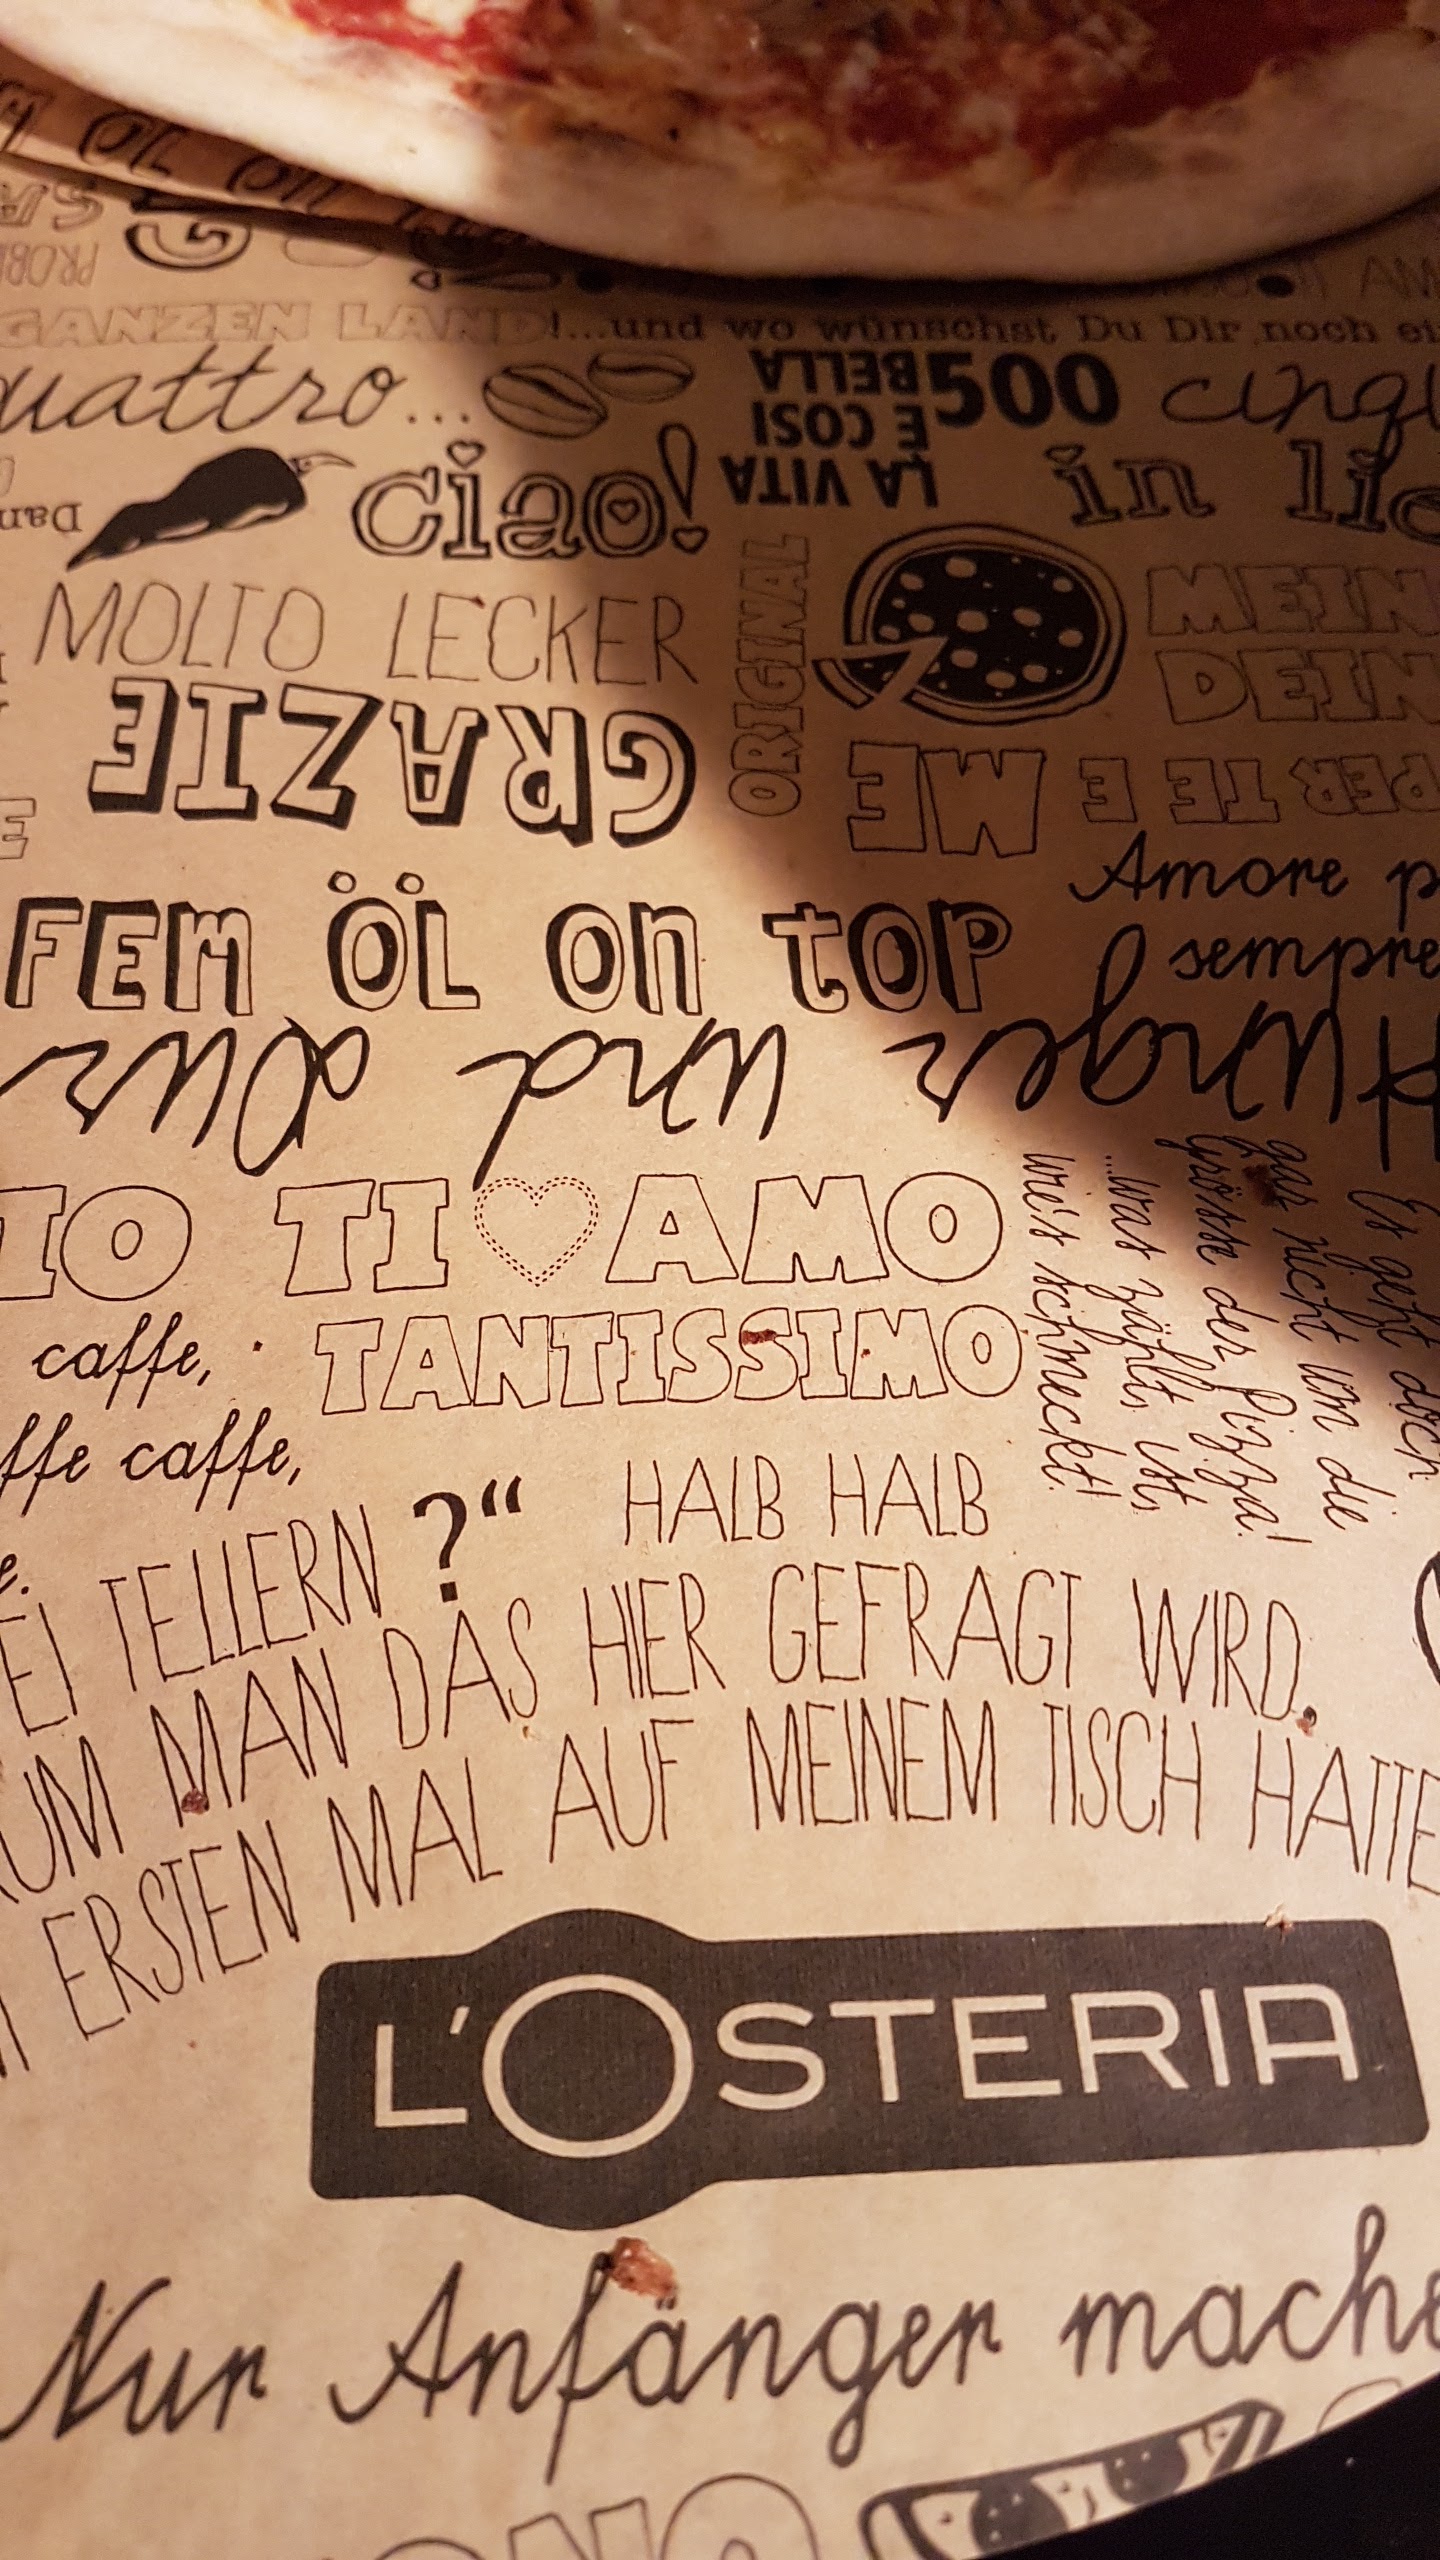 ÖL on
GANZEN LAND!...und wo wünschst Du Dir noch
quattro...
500
LA VITA
È COSI
BELLA
cinq
ciao!
in
MOLTO LECKER
ORIGINAL
MEIN
DEIN
GRAZIE
PER TE E
ME
Amore
sempre
FEM ÖL on TOP
Hunger und Dur
IO TI AMO
TANTISSIMO
Es geht doch
gar nicht um die
Grösse der Pizza!
...was zählt, ist,
wie's schmeckt!
caffe,
ffe caffe,
HALB HALB
EI TELLERN ?“
UM MAN DAS HIER GEFRAGT WIRD.
ERSTEN MAL AUF MEINEM TISCH HATTE
L'OSTERIA
Nur Anfänger mache